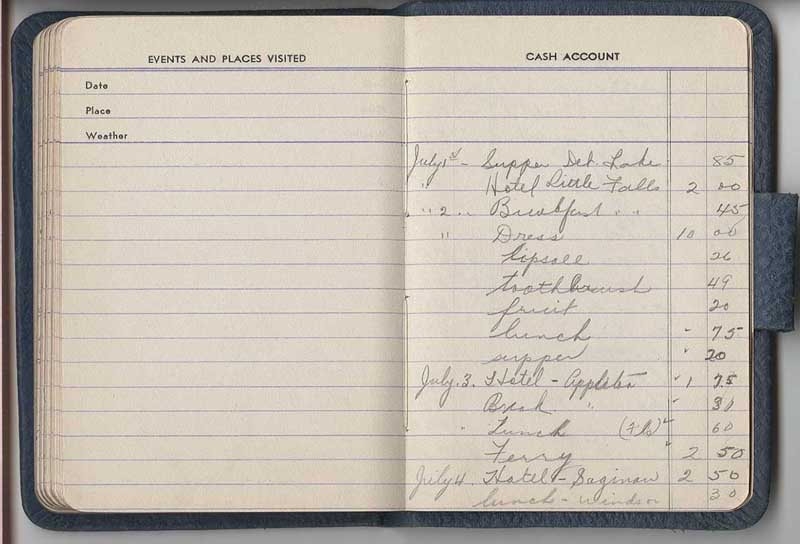 EVENTS AND PLACES VISITED
Date
Place
Weather
CASH ACCOUNT
July 1st - Supper Det. Lake 85
" Hotel Little Falls 2 00
" 2 " Breakfast " " 45
" Dress 10 00
lipsall 26
toothbrush 49
fruit 20
lunch " 75
supper " 20
July 3. Hotel - Appleton " 1 75
Break " " 30
" Lunch 60
Ferry 2 50
July 4. Hotel - Saginaw 2 50
lunch - Windsor 30